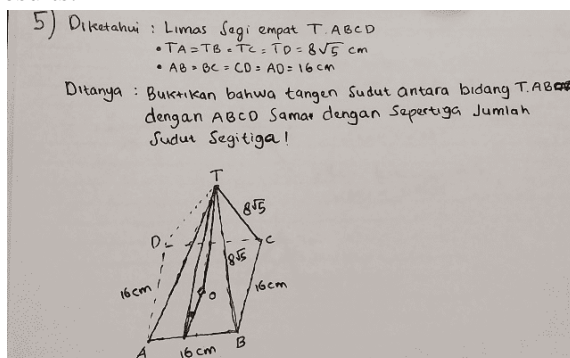 5) Diketahui : Limas Segi empat T.ABCD
• TA = TB = TC = TD = 8√5 cm
• AB = BC = CD = AD = 16 cm
Ditanya : Buktikan bahwa tangen Sudut antara bidang T.AB
dengan ABCD Sama dengan Sepertiga Jumlah
Sudut Segitiga !
T
8√5
D
C
8√5
16 cm
O
16 cm
A
16 cm
B